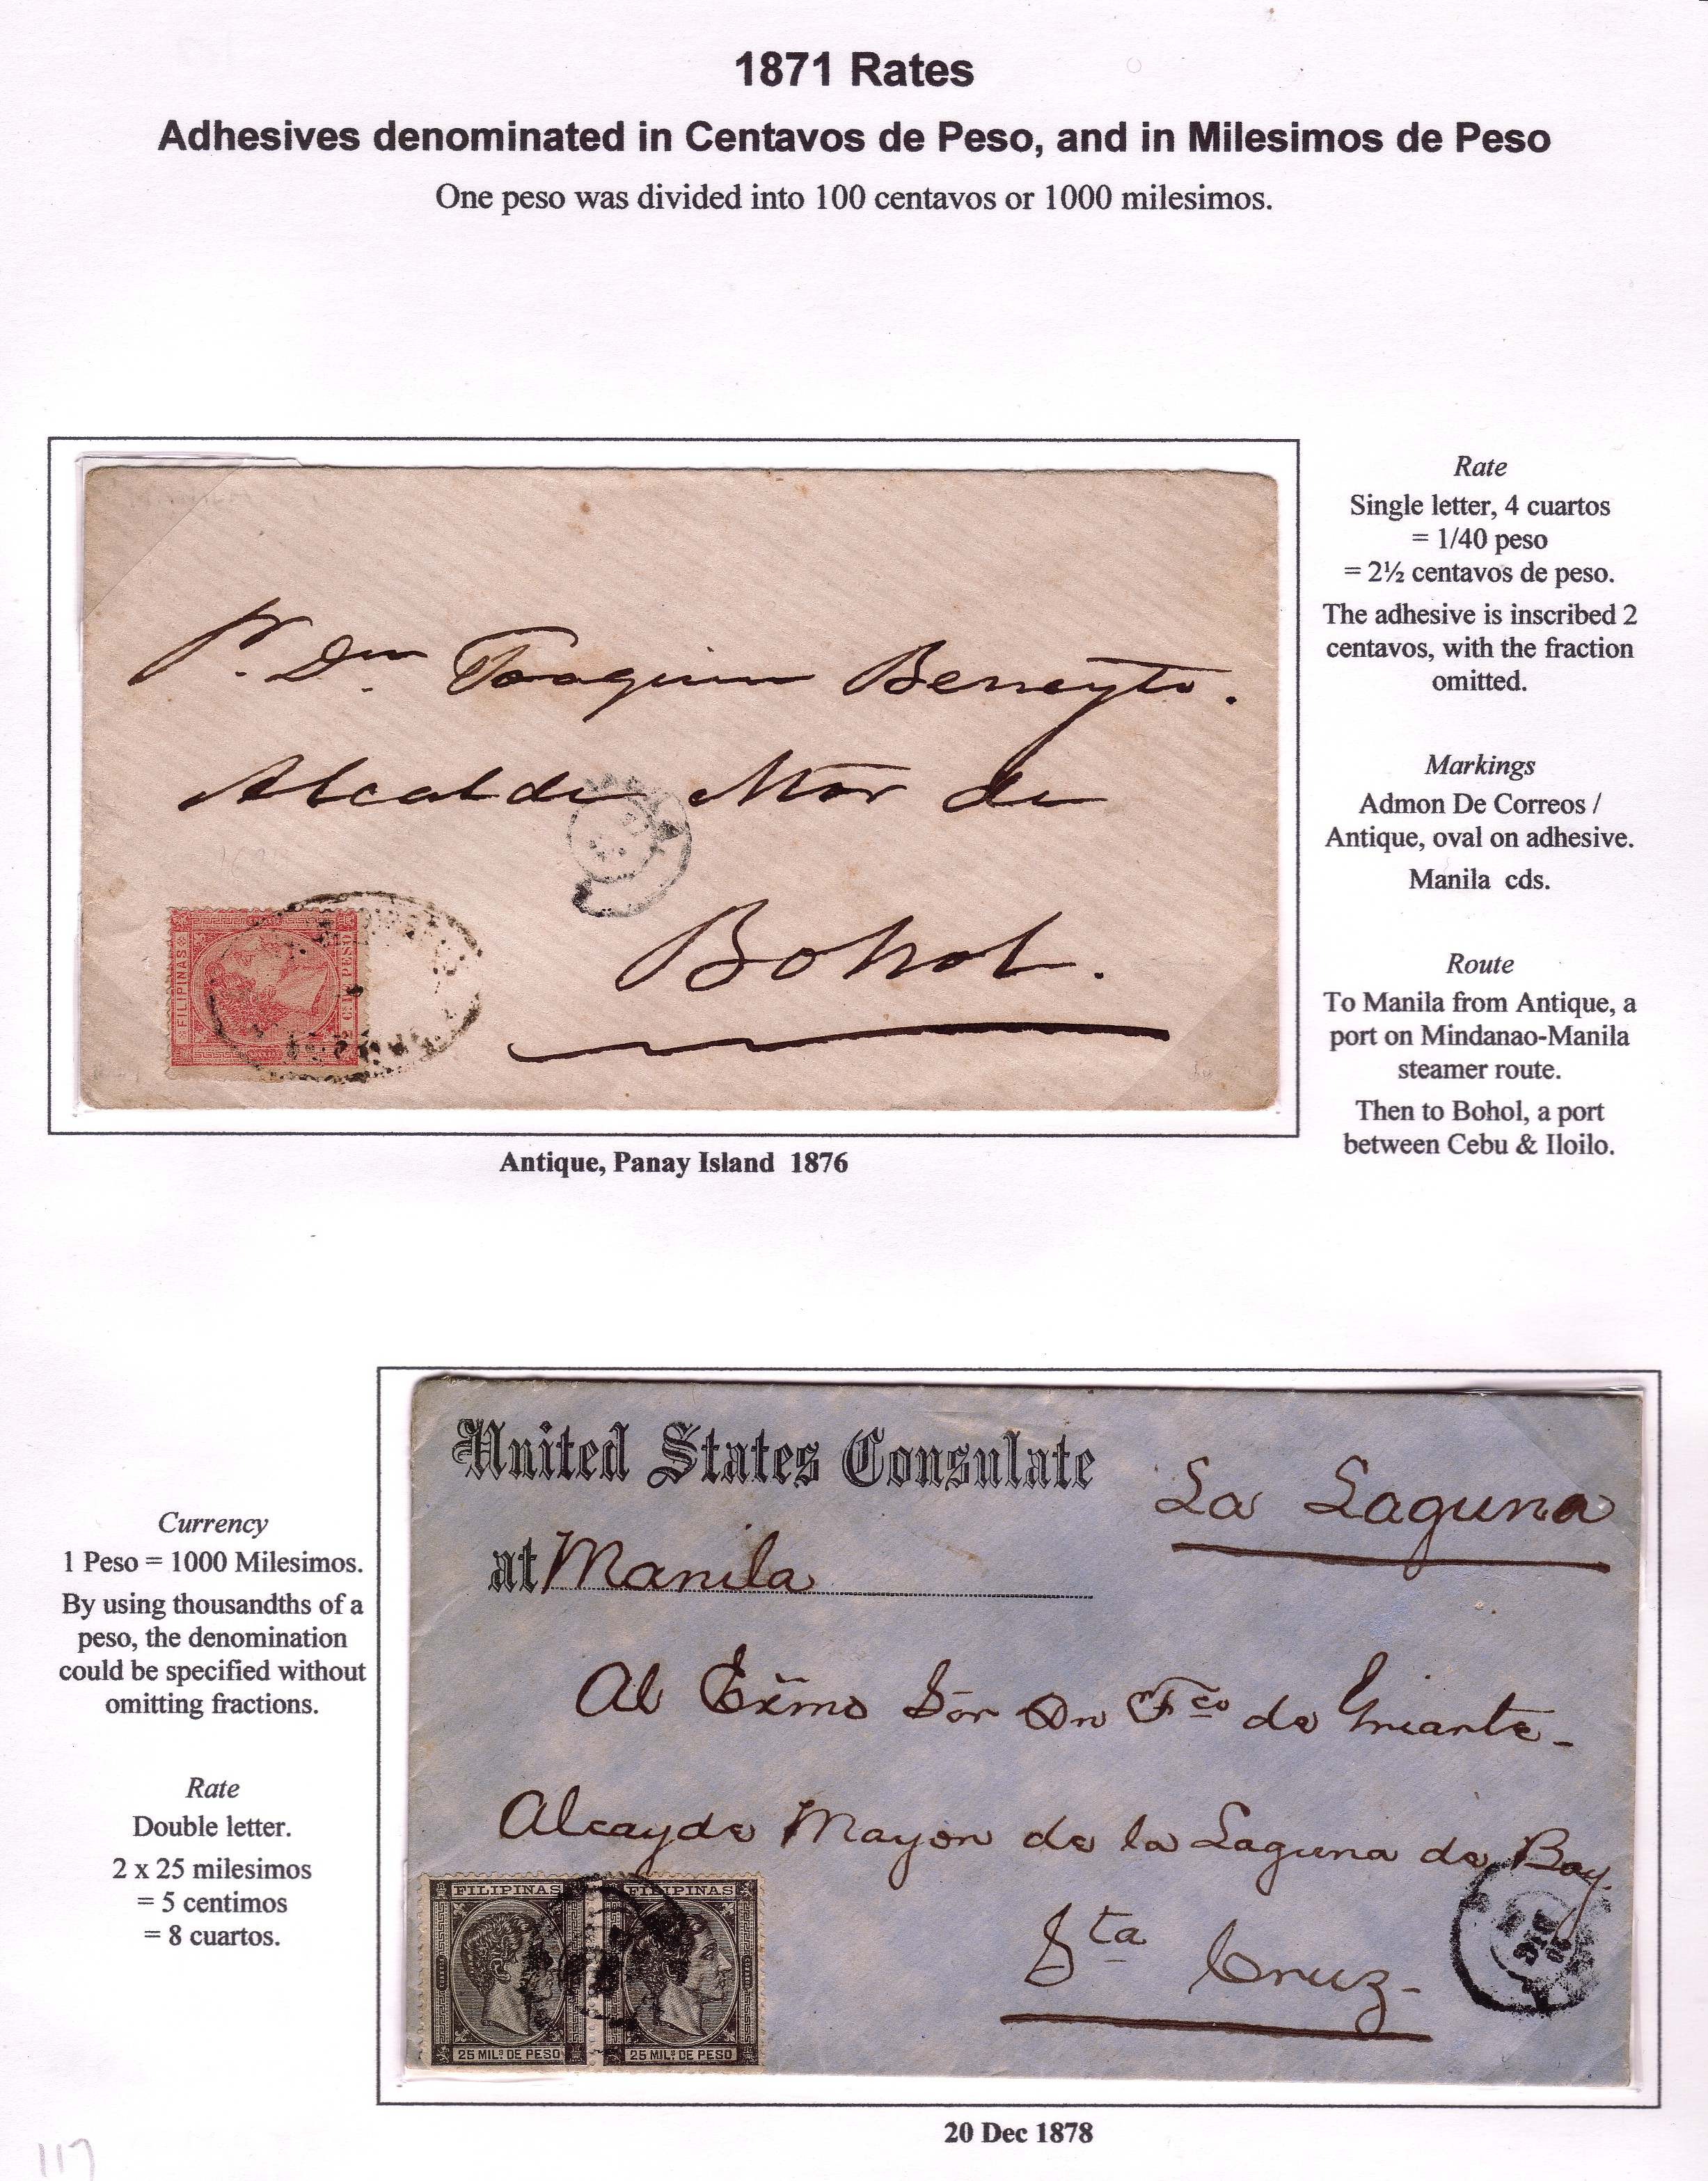 1871 Rates
Adhesives denominated in Centavos de Peso, and in Milesimos de Peso
One peso was divided into 100 centavos or 1000 milesimos.
Pr. Dn. Joaquin Beneyto.
Alcalde Mor de
Bohol.
FILIPINAS
2 CS PESO
Antique, Panay Island 1876
Rate
Single letter, 4 cuartos
= 1/40 peso
= 2½ centavos de peso.
The adhesive is inscribed 2
centavos, with the fraction
omitted.
Markings
Admon De Correos /
Antique, oval on adhesive.
Manila cds.
Route
To Manila from Antique, a
port on Mindanao-Manila
steamer route.
Then to Bohol, a port
between Cebu & Iloilo.
Currency
1 Peso = 1000 Milesimos.
By using thousandths of a
peso, the denomination
could be specified without
omitting fractions.
Rate
Double letter.
2 x 25 milesimos
= 5 centimos
= 8 cuartos.
United States Consulate
at Manila
La Laguna
Al Exmo Sor Dn Fco de Yriarte-
Alcayde Mayor de la Laguna de Bay.
Sta Cruz-
FILIPINAS FILIPINAS
25 MILS DE PESO 25 MILS DE PESO
DIC
20 Dec 1878
117